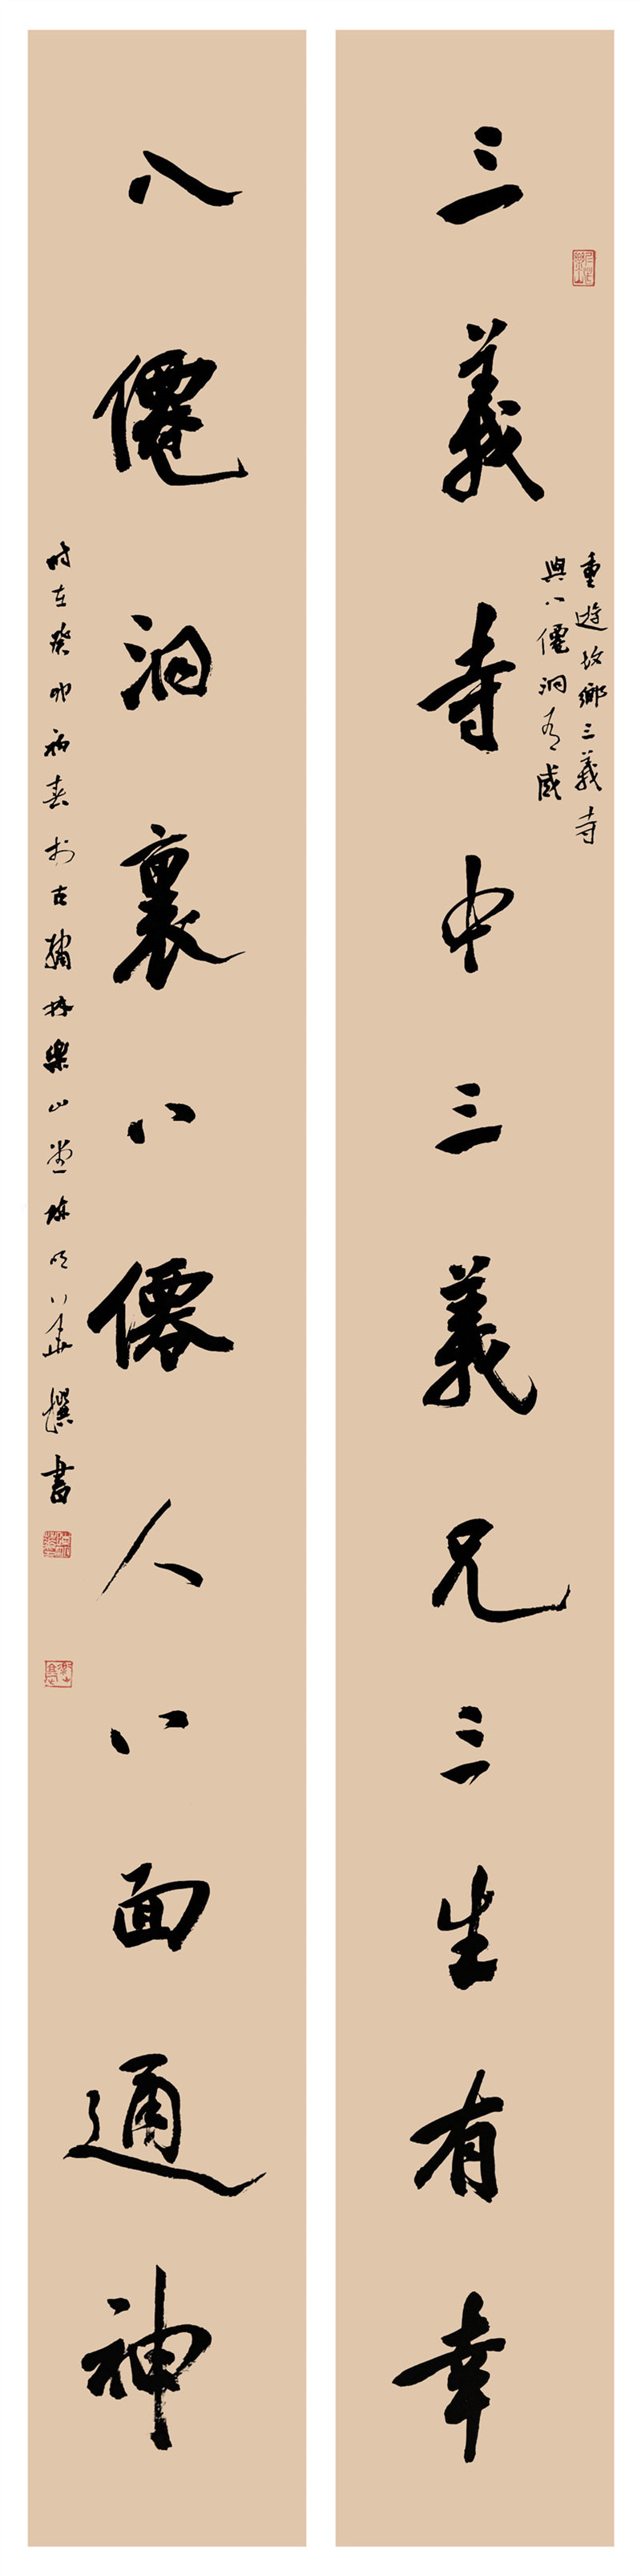 三義寺中三義兄三生有幸
重遊故鄉三義寺
與八僊洞有感
八僊洞裏八僊人八面通神
時在癸卯初春於古繡林樂山堂陳 華撰書